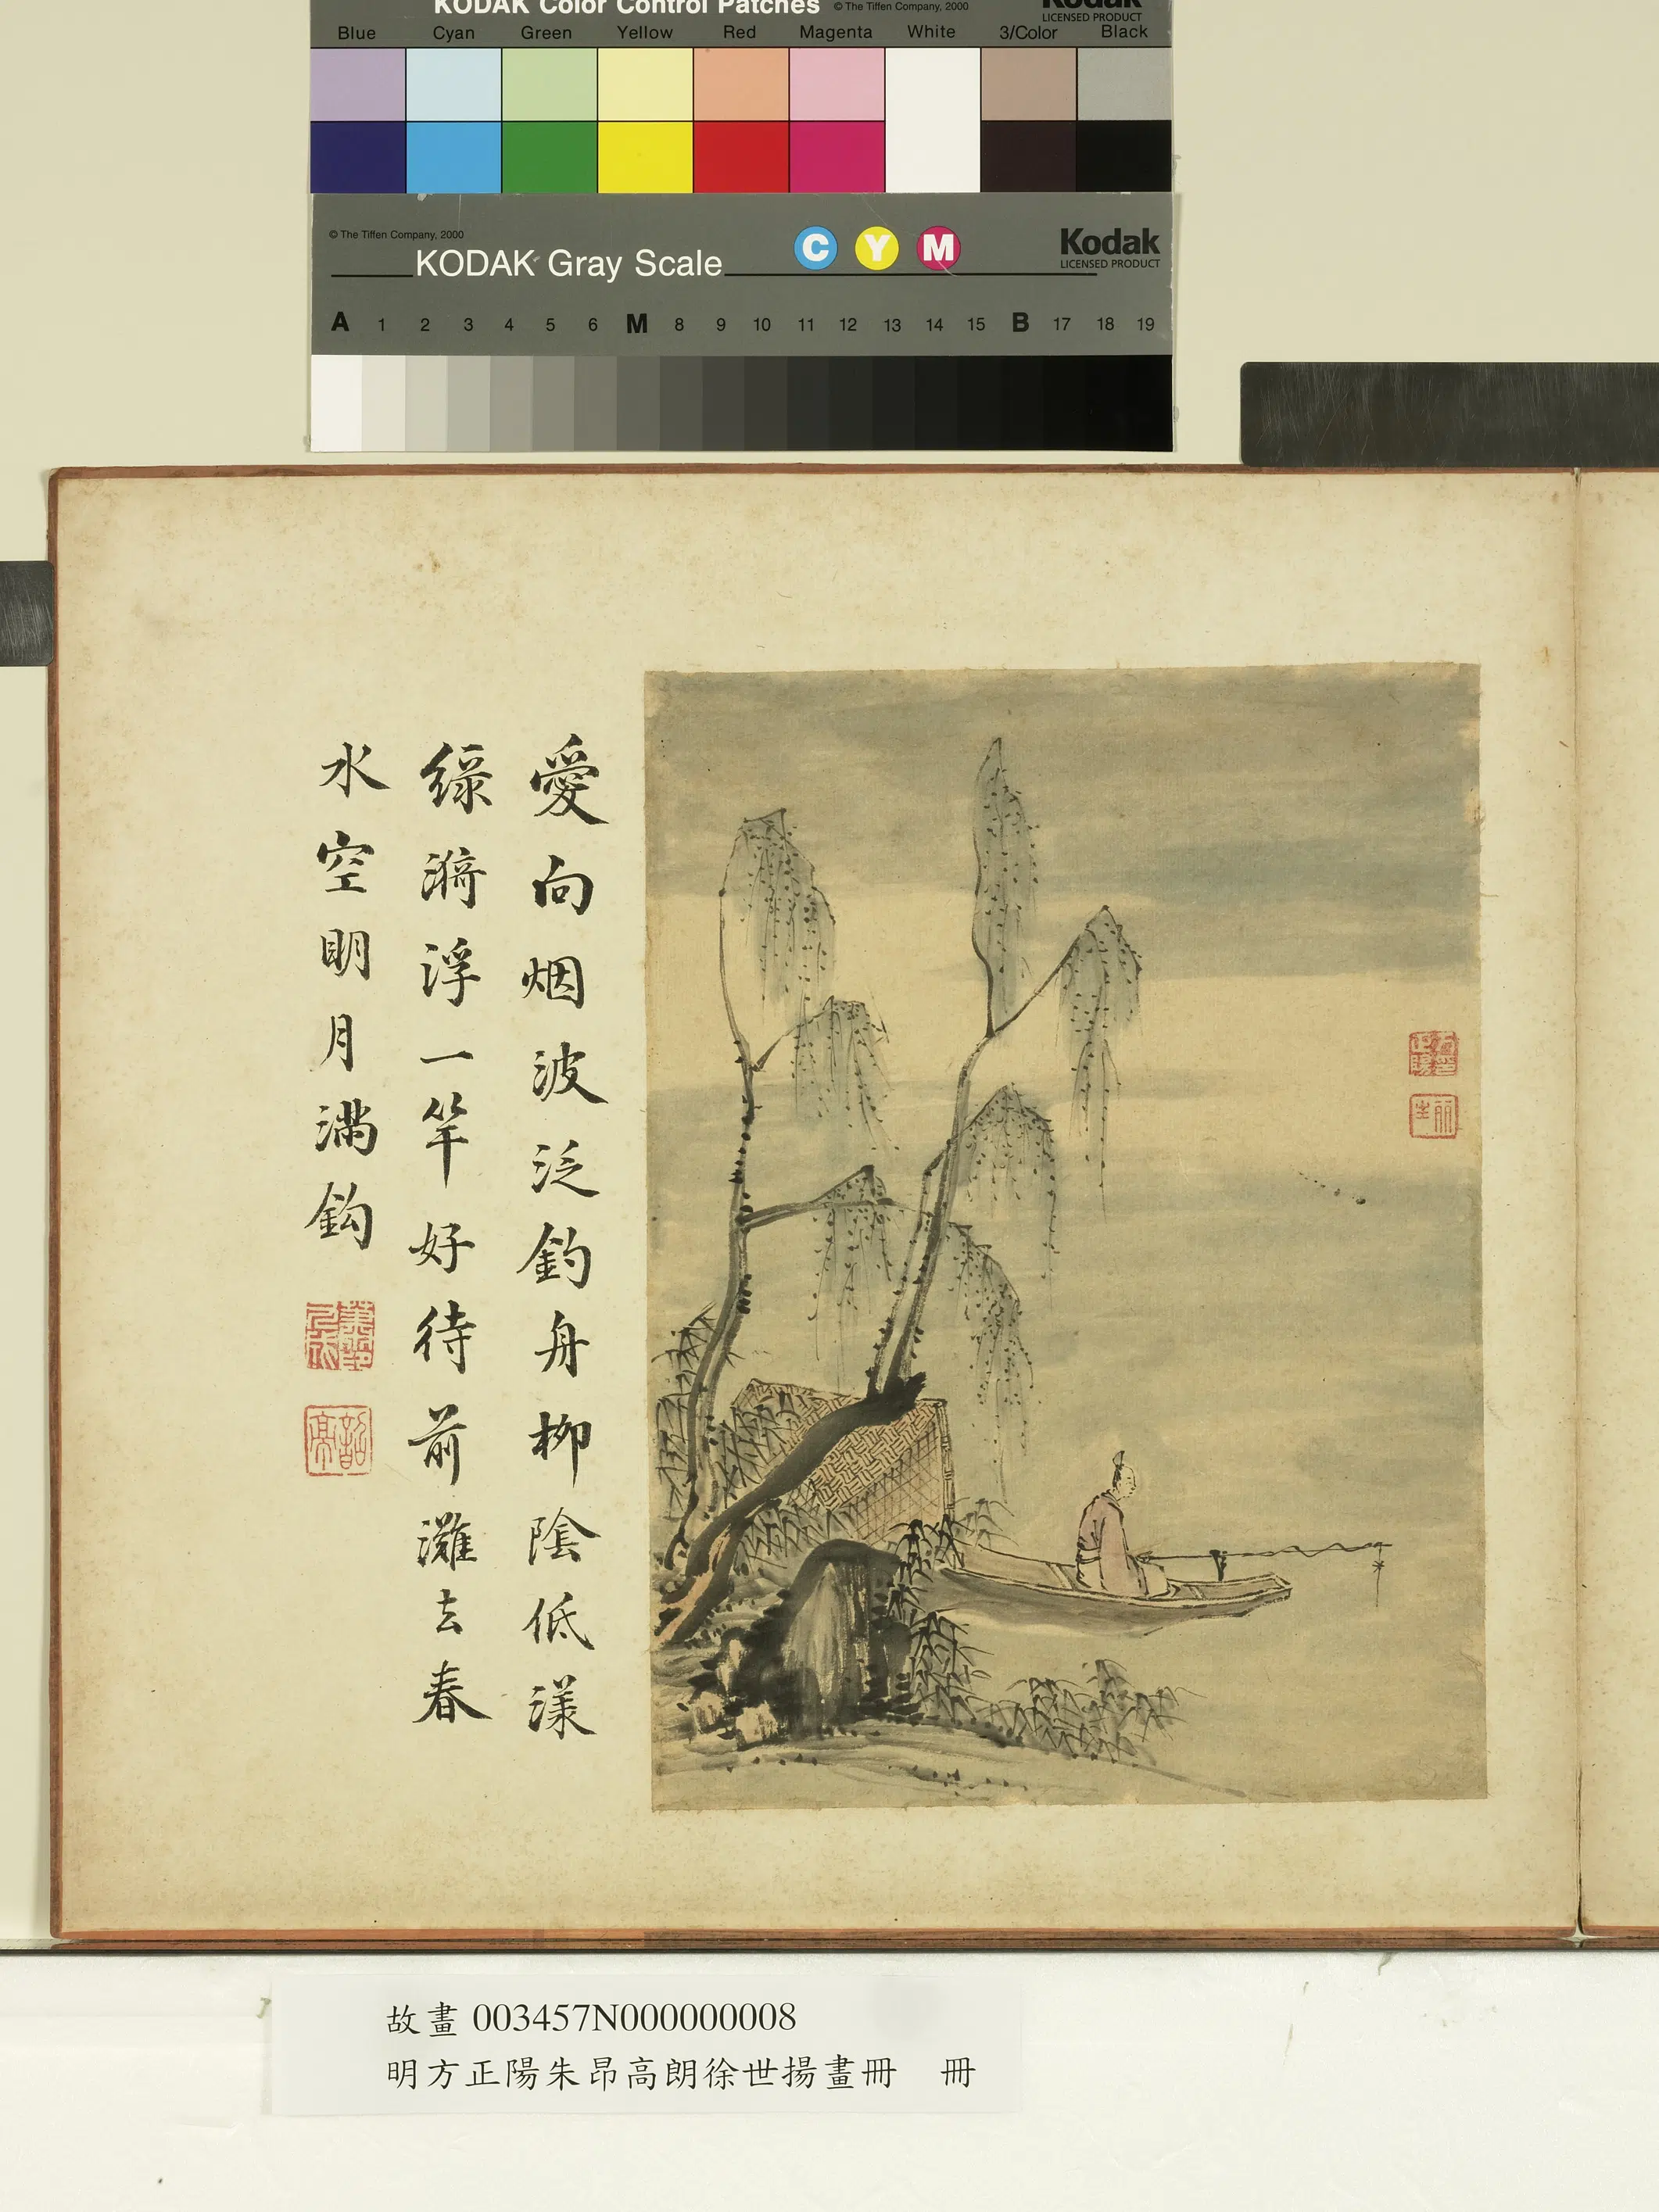 KODAK Color Control Patches © The Tiffen Company, 2000 Kodak
LICENSED PRODUCT
Blue Cyan Green Yellow Red Magenta White 3/Color Black
© The Tiffen Company, 2000
KODAK Gray Scale C Y M Kodak
LICENSED PRODUCT
A 1 2 3 4 5 6 M 8 9 10 11 12 13 14 15 B 17 18 19
愛向烟波泛釣舟柳陰低漾
綠漪浮一竿好待前灘去春
水空明月滿鈎
故畫003457N000000008
明方正陽朱昂高朗徐世揚畫冊 冊